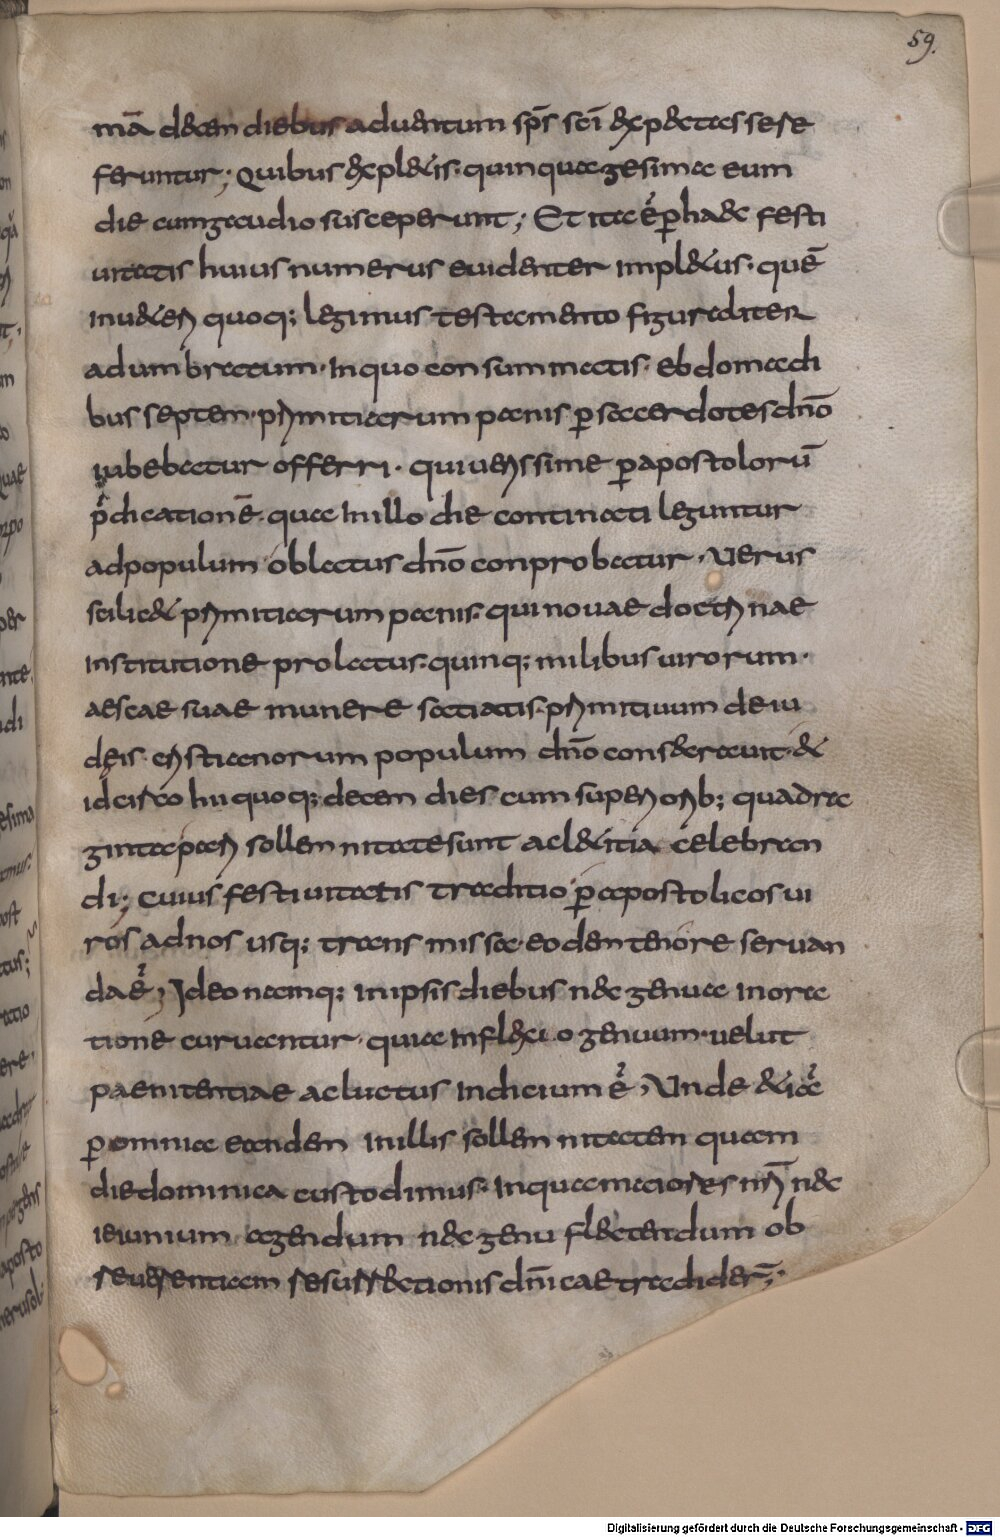 59.
mā decem diebus aduentum sp̄s sc̄i expectasse re
feruntur; Quibus expletis· quinquagesimae eum
die cum gaudio susceperunt; Et ita ē per hac festi
uitatis huius numerus euidenter impletus· quē
in ueteri quoq; legimus testamento figuraliter
adumbratum· In quo consummatis· ebdomadi
bus septem· primitiarum panis ꝑ sacerdotes dn̄o
iubebatur offerri· qui uerissime ꝑ apostolorū
p̄dicationē· quae in illo die contionati leguntur
ad populum oblatus dn̄o conprobatur· Uerus
scilicet primitiarum panis· qui nouae doctrinae
institutione prolatus· quinq; milibus uirorum·
aescae suae munere satiatis· primitiuum de iu
deis· cristianorum populum dn̄o consecrauit· et
idcirco hii quoq; decem dies cum superiorib; quadra
ginta pari sollemnitate sunt ac laetitia celebran
di; Cuius festiuitatis traditio ꝑ apostolicos ui
ros ad nos usq; transmissa· eodem tenore seruan
da ē; Ideo namq; in ipsis diebus nec genua in ora
tione curuantur· quia inflexio genuum· uelut
paenitentiae ac luctus indicium ē; Unde etiā
ꝑ omnia eandem in illis sollemnitatem quam
die dominica custodimus· In qua maiores nr̄i nec
ieiunium agendum nec genu flectendum ob
reuerentiam resurrectionis dn̄icae tradider̄;·
Digitalisierung gefördert durch die Deutsche Forschungsgemeinschaft - DFG